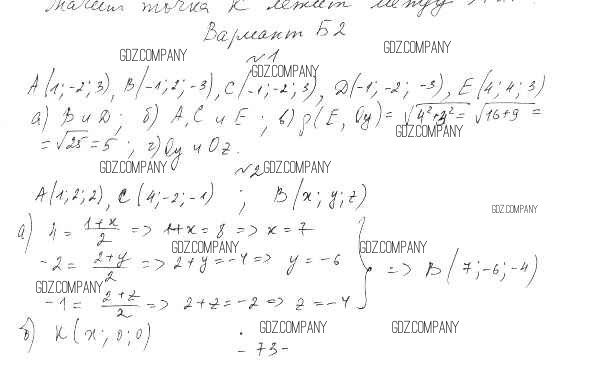 Значит точка K лежит между
Вариант Б2
GDZ.COMPANY GDZ.COMPANY
№1
GDZ.COMPANY
A(1;-2;3), B(-1;2;-3), C(-1;-2;3), D(-1;-2;-3), E(4;4;3)
а) B и D; б) A, C и E; в) ρ(E, Oy)=√4²+3²=√16+9=
GDZ.COMPANY
=√25=5; г) Oy и Oz.
GDZ.COMPANY GDZ.COMPANY
№2
A(1;2;2), C(4;-2;-1) ; B(x;y;z)
GDZ.COMPANY
а) 4=1+x/2 => 1+x=8 => x=7
GDZ.COMPANY GDZ.COMPANY
-2=2+y/2 => 2+y=-4 => y=-6
=> B(7;-6;-4)
GDZ.COMPANY
-1=2+z/2 => 2+z=-2 => z=-4
б) K(x;0;0)
GDZ.COMPANY GDZ.COMPANY
-73-